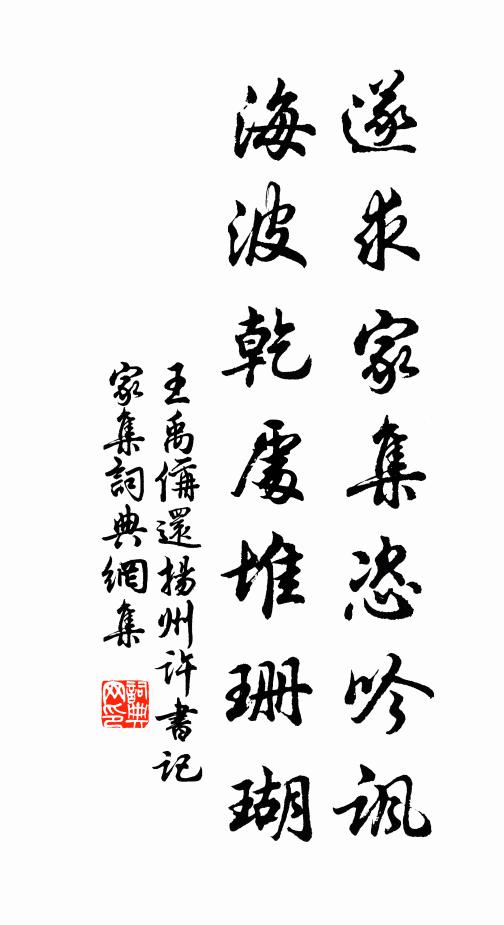 遂求家集恣吟諷
海波乾處堆珊瑚
王禹偁還揚州許書記
家集詞典網集
詞典
网印